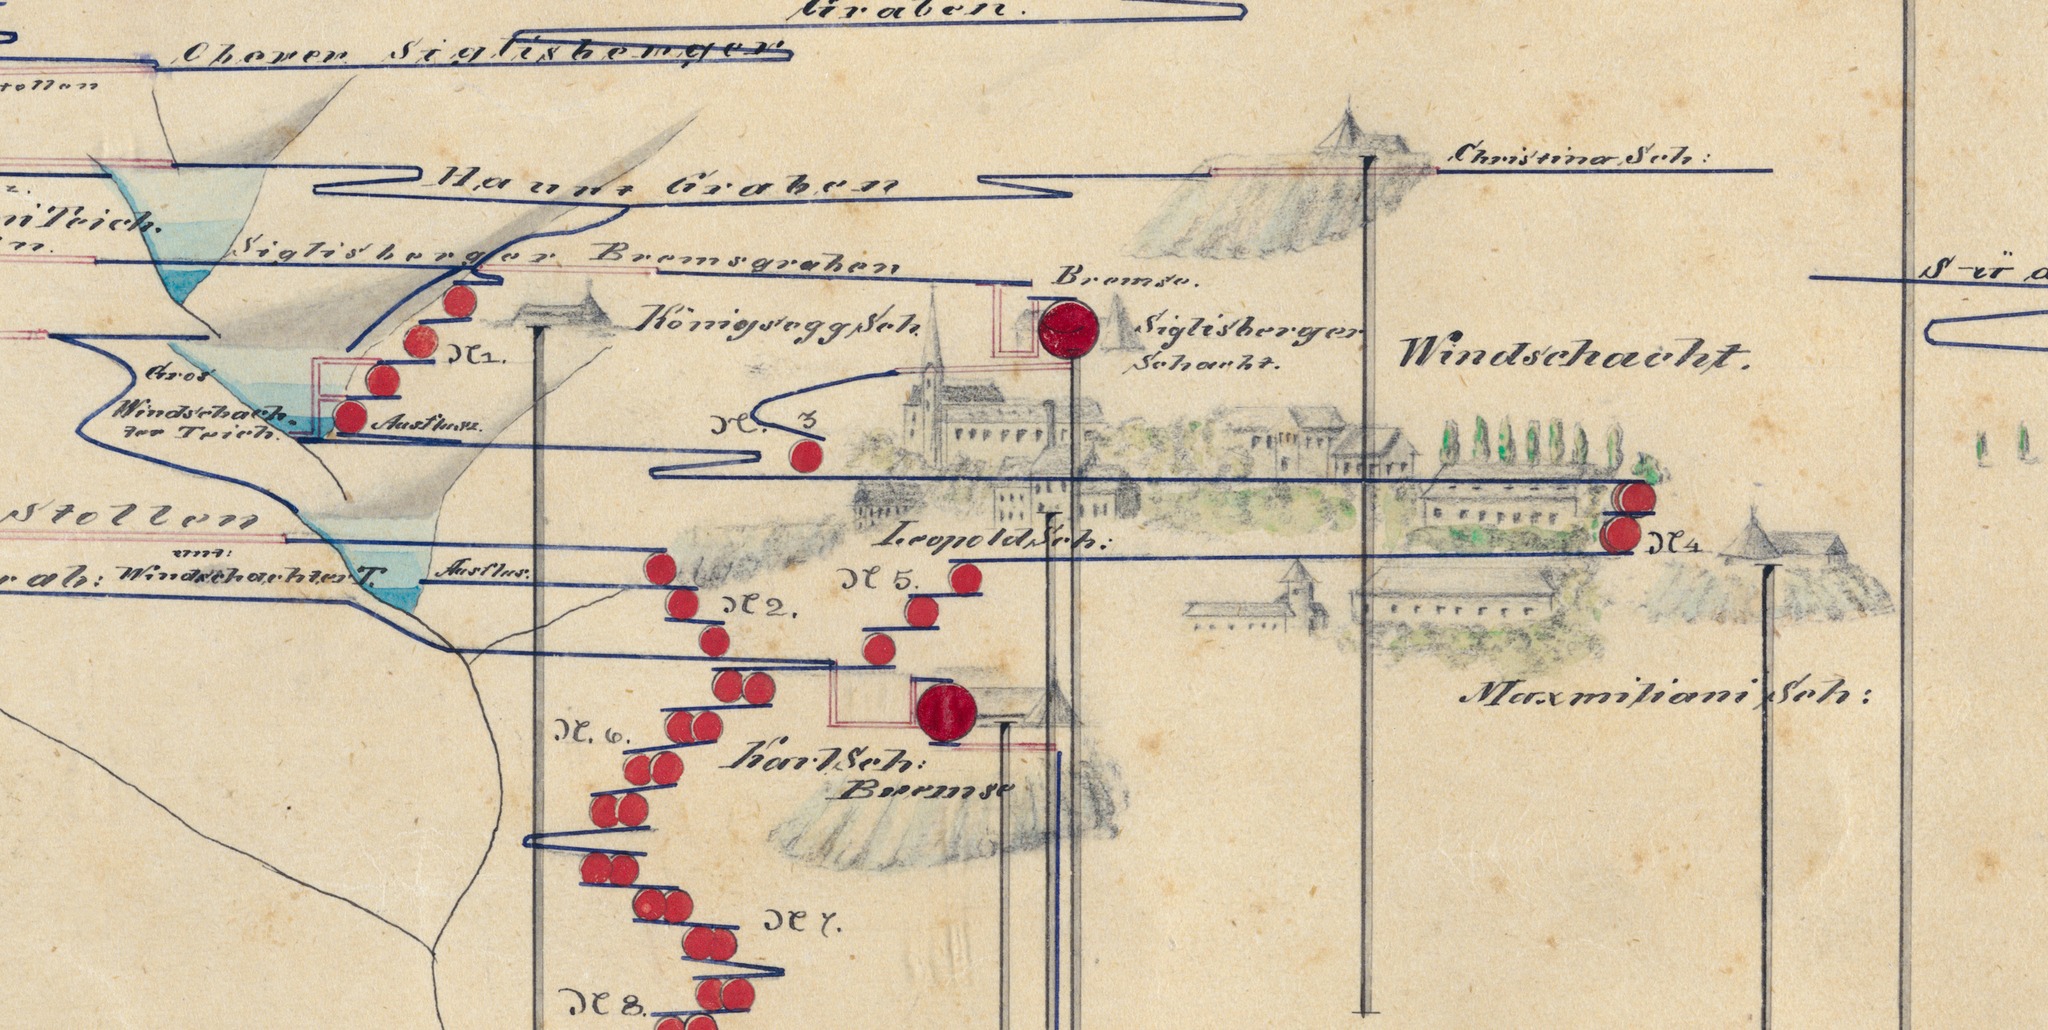 Graben.
Oberer Siglisberger
Christina Sch:
Haupt Graben
Teich.
Siglisberger Bremsgraben
Bremse.
Königsegg Sch.
Siglisberger
Schacht.
Windschacht.
N 1.
Gros
Windschach-
ter Teich.
Ausfluss.
N. 3
Stollen
unt:
Windschachter T.
Ausflus.
Leopold Sch:
N 4
N 5.
N 2.
Maxmiliani Sch:
N. 6.
Karl Sch:
Bremse
N 7.
N 8.